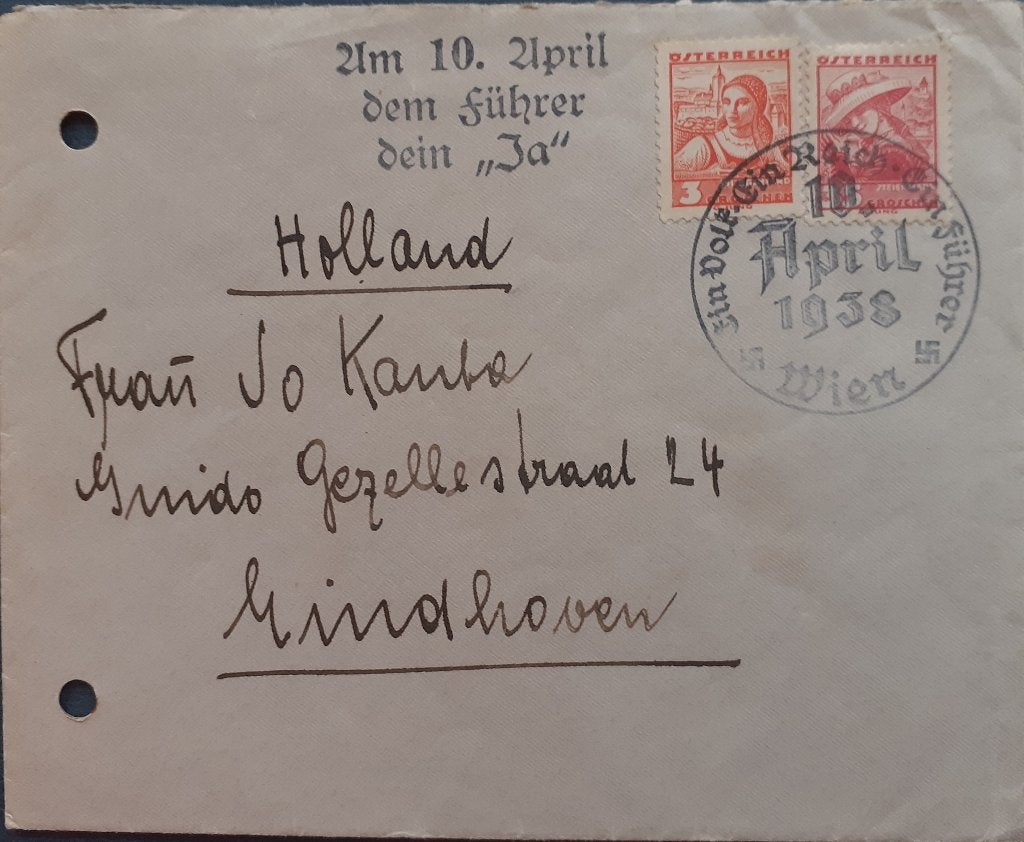 Am 10. April
dem Führer
dein „Ja“
ÖSTERREICH
3
GROSCHEN
ÖSTERREICH
GROSCHEN
Ein Volk. Ein Reich. Ein Führer
10.
April
1938
Wien
Holland
Frau Jo Kanta
Guido Gezellestraat 24
Eindhoven